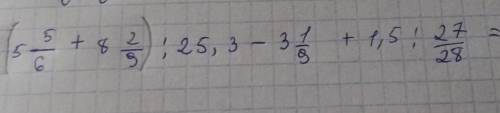 (5 5/6 + 8 2/9) : 25,3 - 3 1/9 + 1,5 : 27/28 =